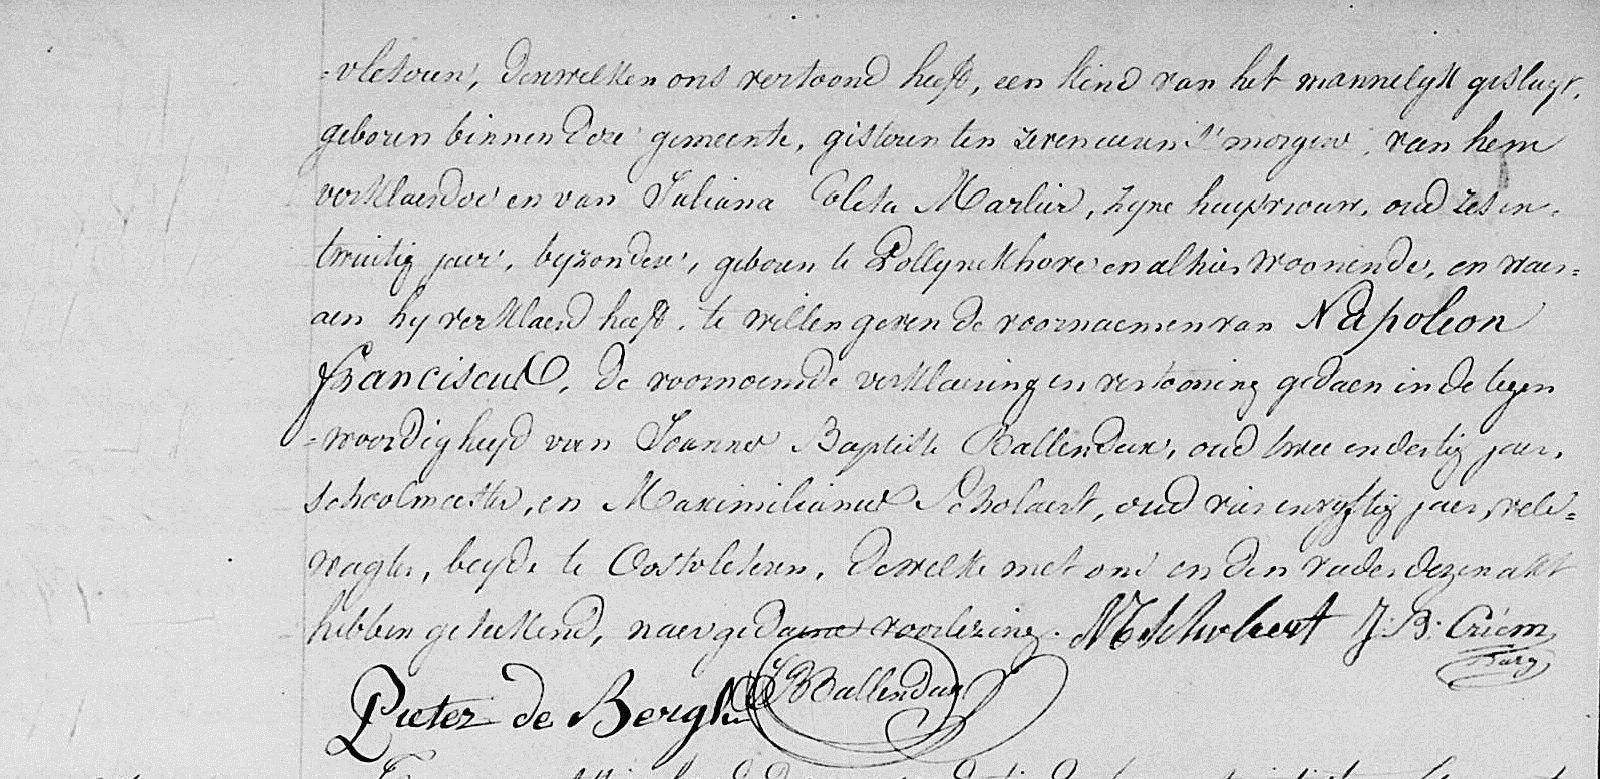 =vleteren, denwelken ons vertoond heeft, een kind van het mannelyk geslagt,
geboren binnen deze gemeente, gisteren ten zeven uren s'morgens, van hem
verklaerder en van Juliana Coleta Marlier, zyne huysvrouw, oud zes en-
twintig jaer, byzondere, geboren te Pollynckhove en alhier woonende, en waer=
aen hy verklaerd heeft, te willen geven de voornaemen van Napoleon
Franciscus, de voornoemde verklaering en vertooning gedaen in de tegen
=woordigheyd van Joannes Baptiste Ballendeux, oud twee en dertig jaer,
schoolmeester, en Maximilianus Scholaert, oud vier en vyftig jaer, veld=
wagter, beyde te Oostvleteren, dewelke met ons en den vader dezen akt
hebben geteekend, naer gedaene voorlezing. M Scholaert J: B: Criem
Burg
Pieter de Bergh JB Ballendeux